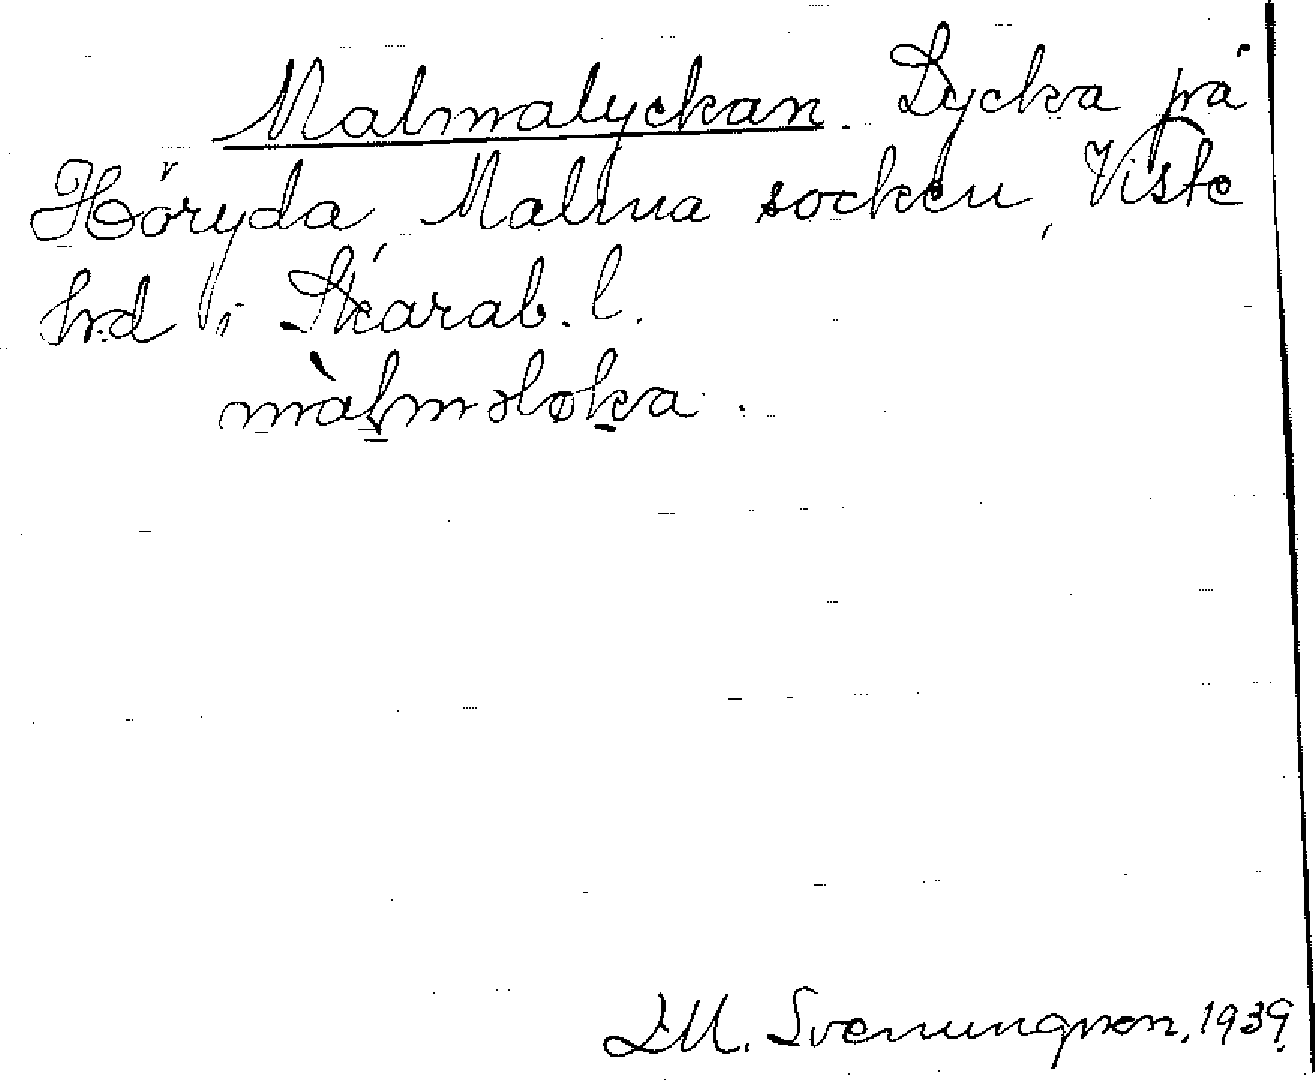 Malmalyckan. Lycka på
Höryda, Malma socken, Viste
hrd i Skarab. l.
màlmələka.
I.M. Svenungsson, 1939.